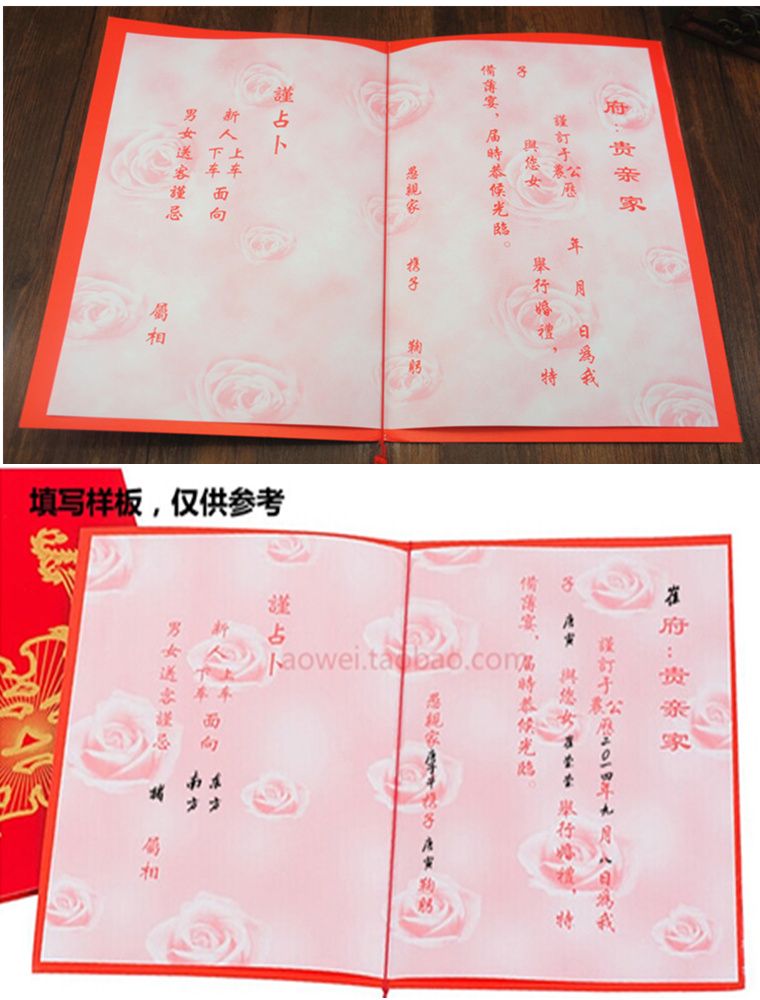 府：贵亲家
謹訂于公歷農歷 年 月 日爲我
子 與您女 舉行婚禮，特
備薄宴，届時恭候光臨。
愚親家 携子 鞠躬
謹占卜
新人上车下车面向
男女送客謹忌
屬相
填写样板，仅供参考
崔府：贵亲家
謹訂于公歷農歷二〇一四年九月八日爲我
子唐寅與您女崔莹莹舉行婚禮，特
備薄宴，届時恭候光臨。
愚親家 携子唐寅鞠躬
謹占卜
新人上车下车面向东方南方
男女送客謹忌猪
屬相
aowei.taobao.com